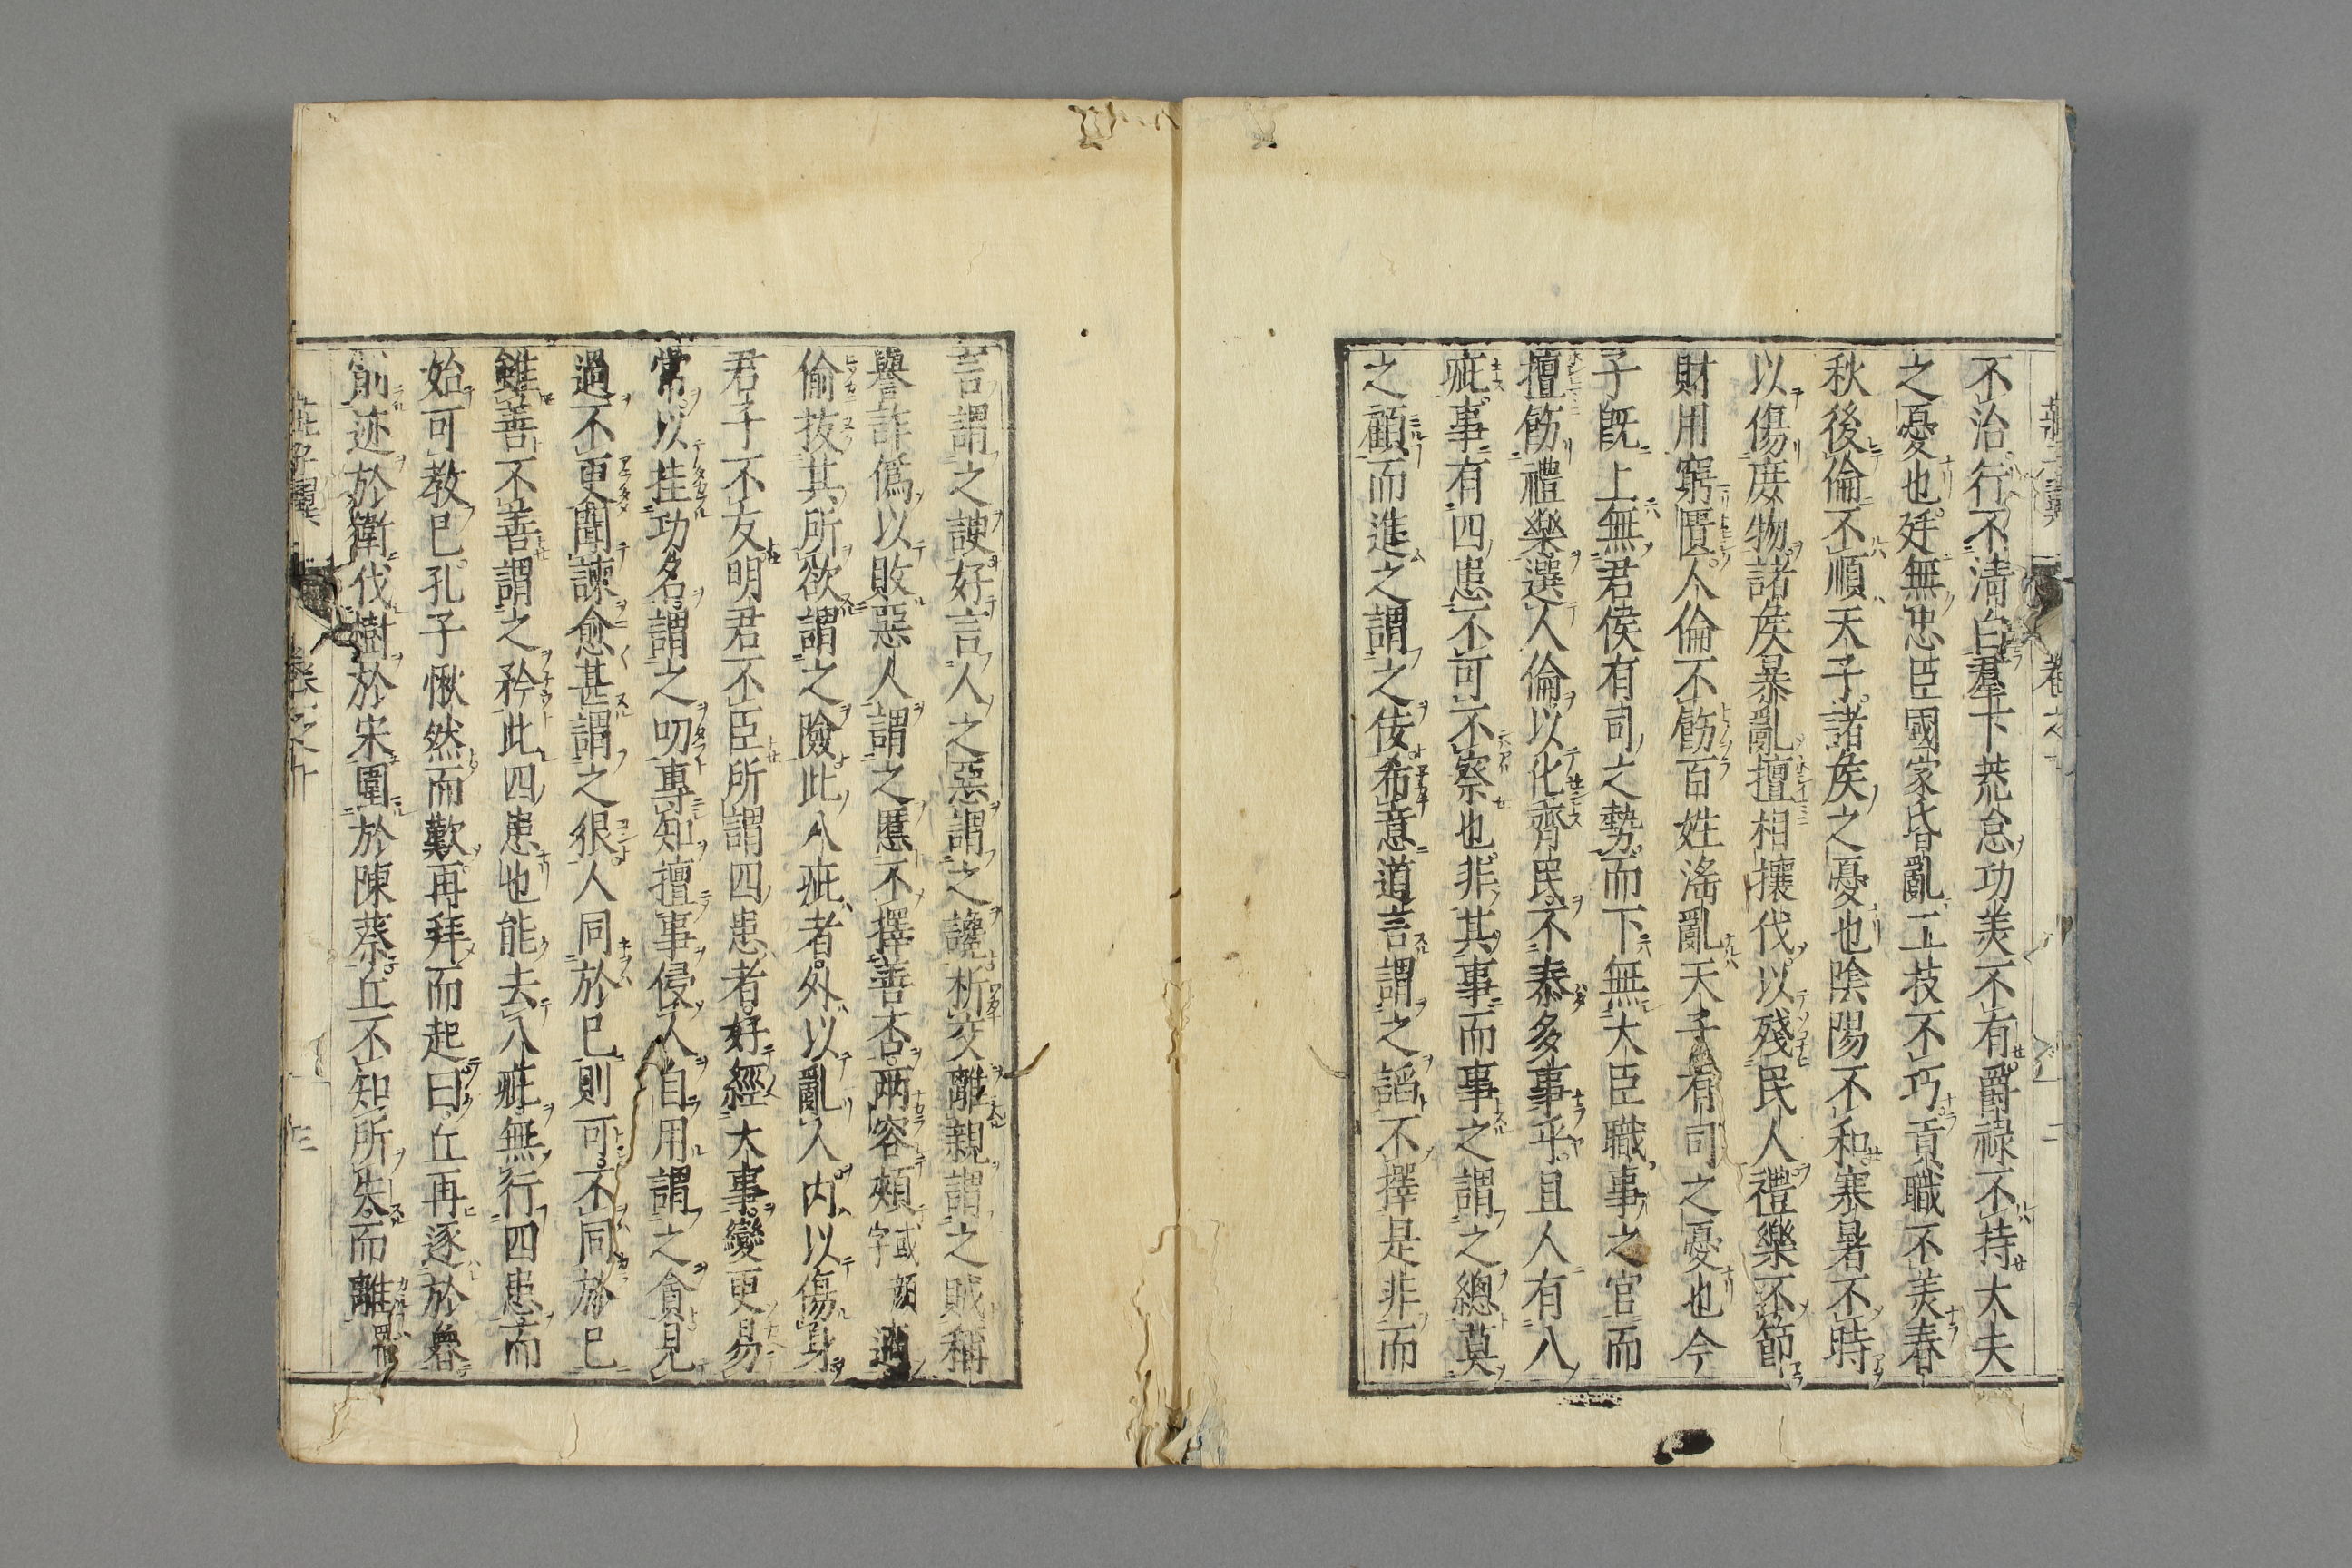 不治行不清白羣下荒怠功美不有爵祿不持大夫
之憂也廷無忠臣國家昏亂工技不巧貢職不美春
秋後倫不順天子諸矦之憂也陰陽不和寒暑不時
以傷庶物諸矦暴亂擅相攘伐以殘民人禮樂不節
財用窮匱人倫不飭百姓淫亂天子有司之憂也今
子既上無君侯有司之勢而下無大臣職事之官而
擅飭禮樂選人倫以化齊民不泰多事乎且人有八
疵事有四患不可不察也非其事而事之謂之總莫
之顧而進之謂之佞希意道言謂之謟不擇是非而
言謂之諛好言人之惡謂之讒析交離親謂之賊稱
譽詐僞以敗惡人謂之慝不擇善否兩容頰字或顔適
偷拔其所欲謂之險此八疵者外以亂人内以傷身
君子不友明君不臣所謂四患者好經大事變更易
常以挂功名謂之叨專知擅事侵人自用謂之貪見
過不更聞諫愈甚謂之很人同於已則可不同於已
雖善不善謂之矜此四患也能去八疵無行四患而
始可教已孔子愀然而歎再拜而起曰丘再逐於魯
削迹於衛伐樹於宋圍於陳蔡丘不知所失而離
莊子翼 卷之十